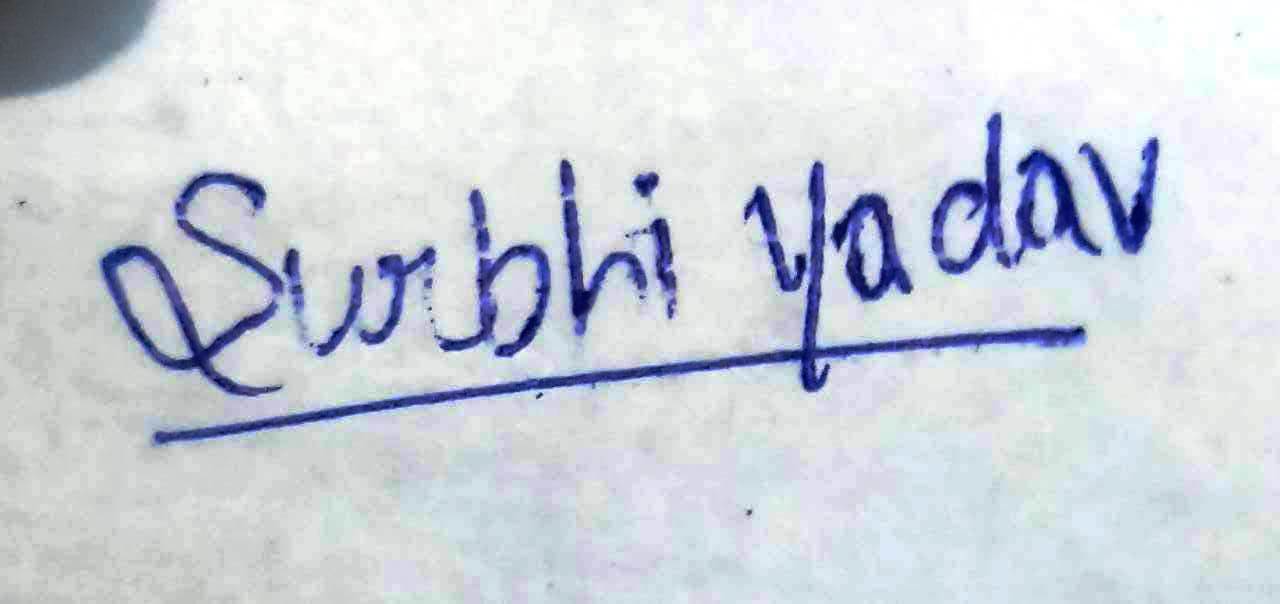 Surbhi Yadav